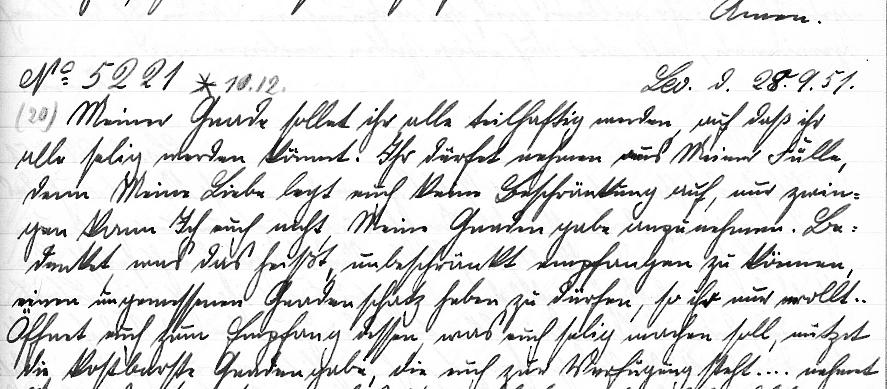 Amen.
No 5221 * 10.12. Lev. d. 28.9.51.
(20) Meiner Gnade sollet ihr alle teilhaftig werden, auf daß ihr
alle selig werden könnt. Ihr dürfet nehmen aus Meiner Fülle,
denn Meine Liebe legt euch keine Beschränkung auf, nur zwin=
gen kann Ich euch nicht, Meine Gnadengabe anzunehmen. Be=
denket, was das heißt, unbeschränkt empfangen zu können,
einen ungemessenen Gnadenschatz heben zu dürfen, so ihr nur wollt..
Öffnet euch zum Empfang dessen, was euch selig machen soll, nützet
die kostbarste Gnadengabe, die euch zur Verfügung steht.... nehmet